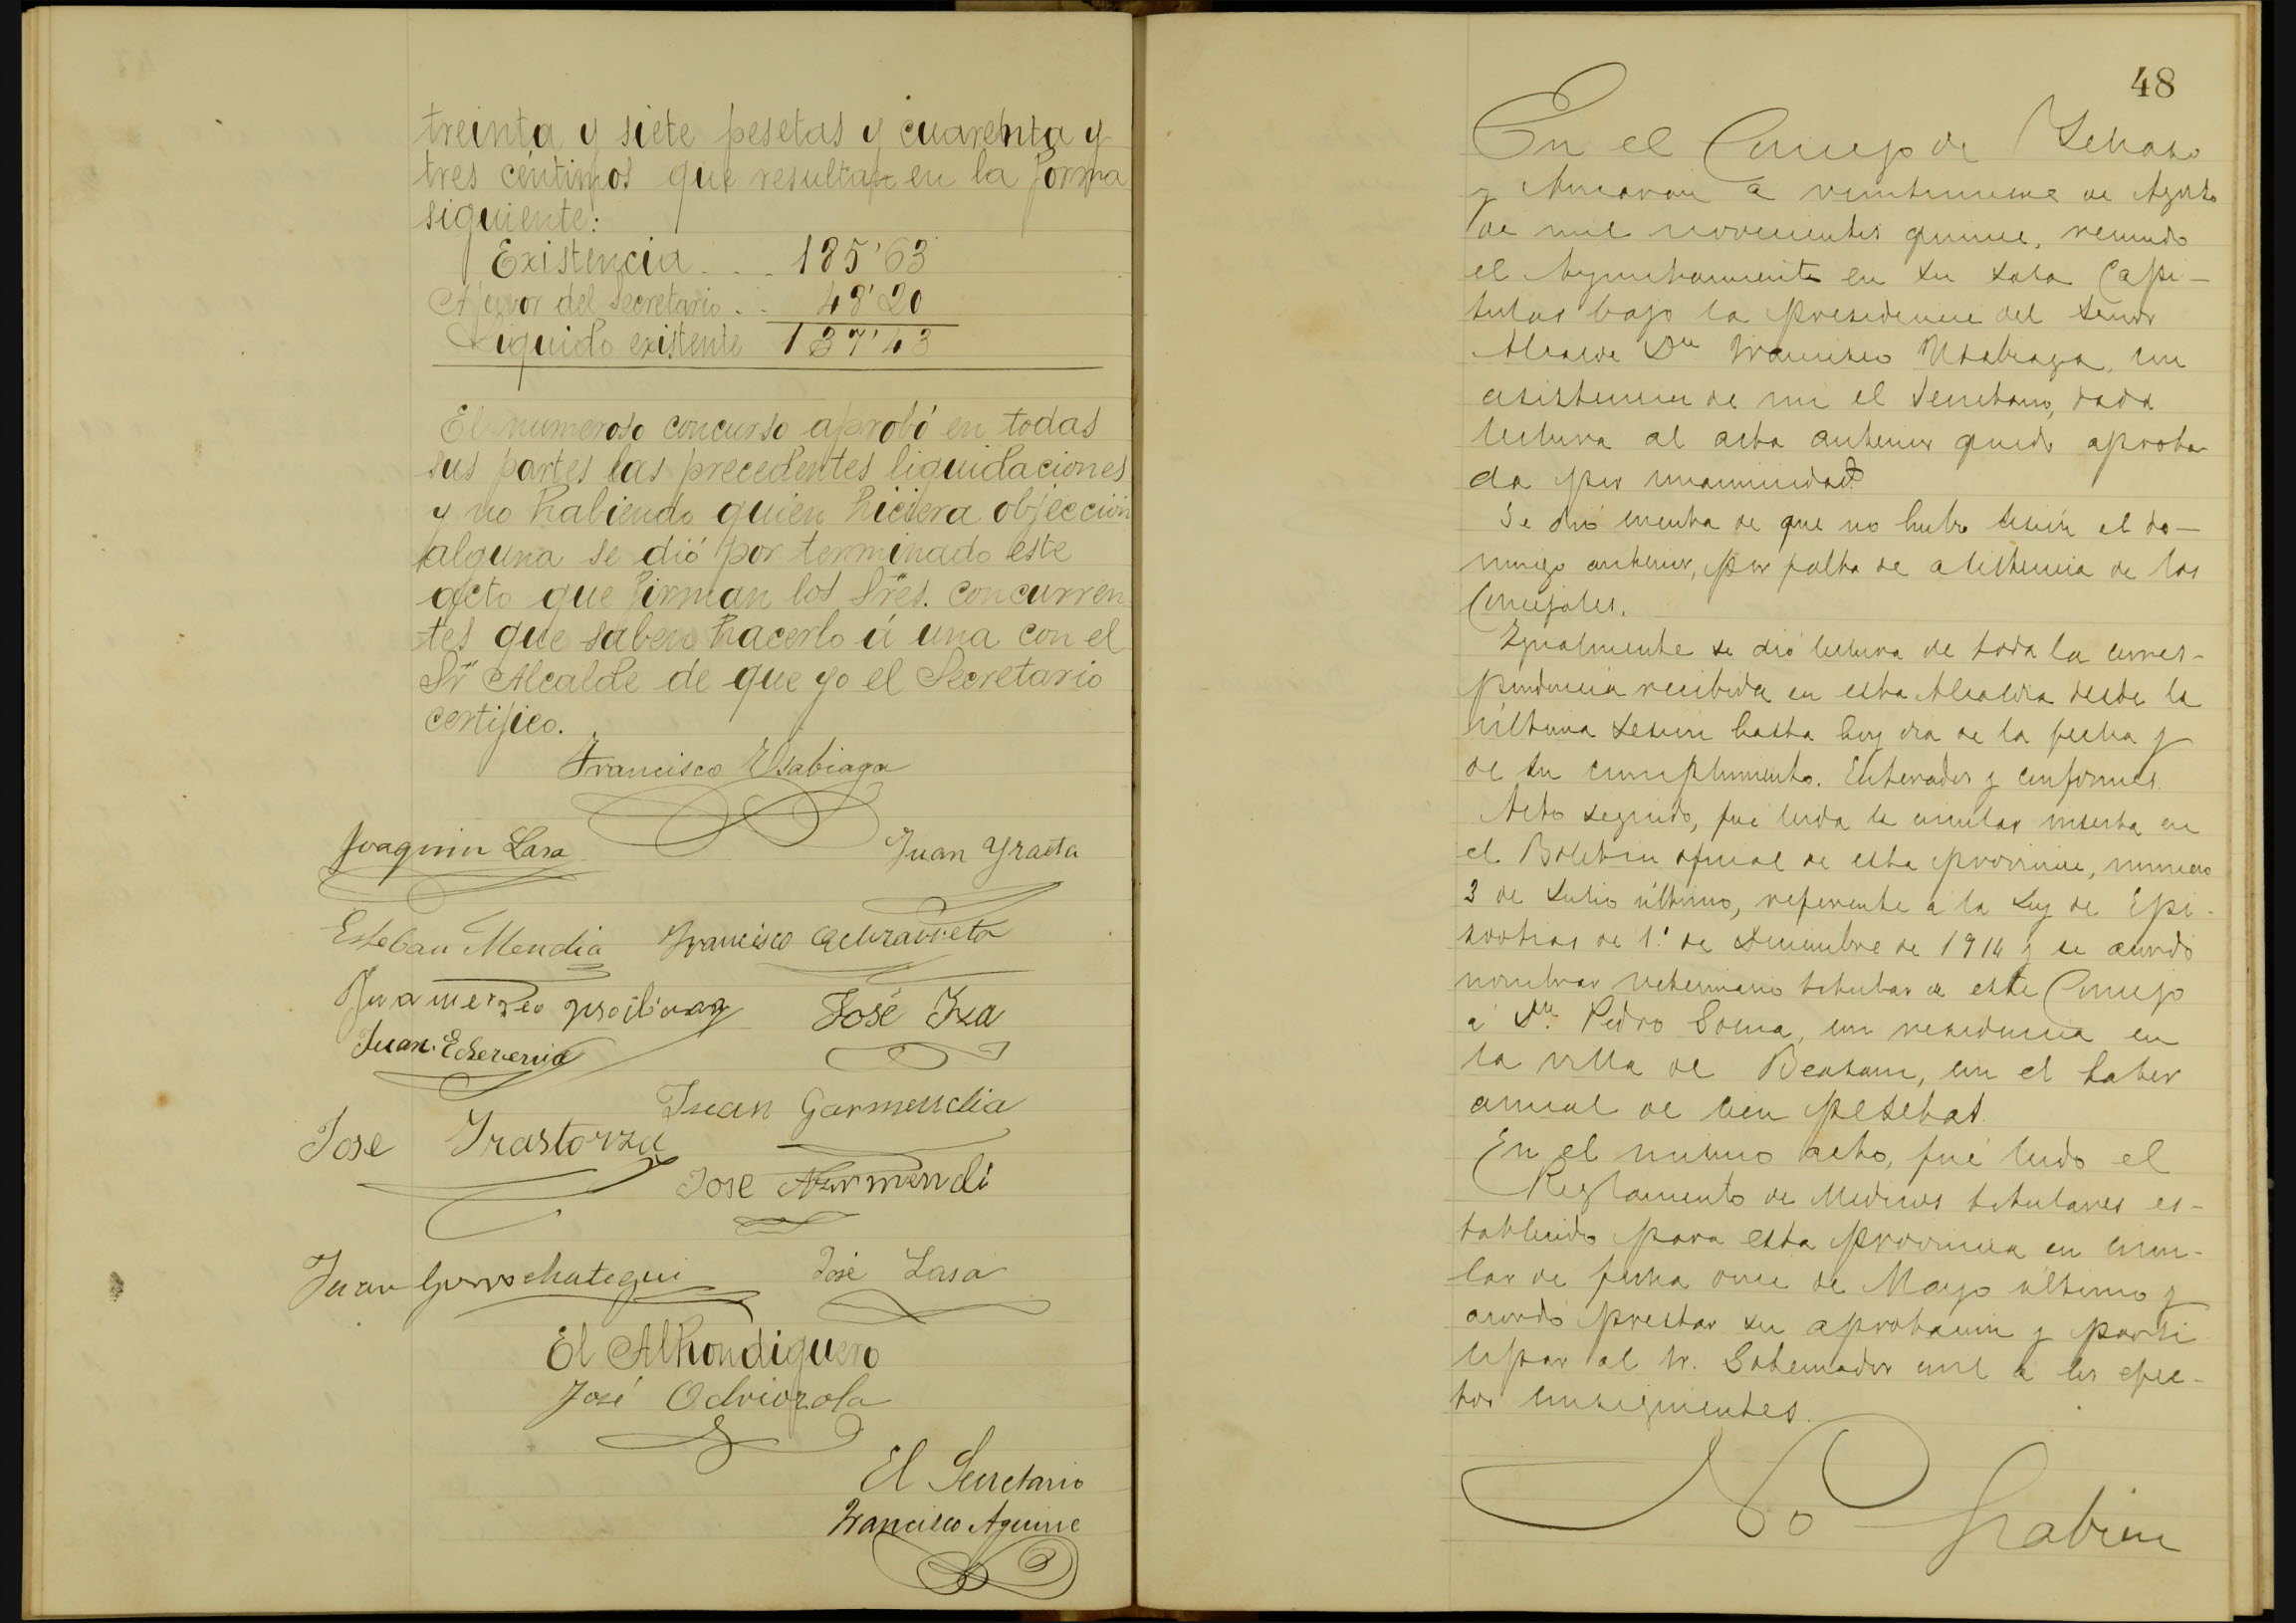 treinta y siete pesetas y cuarenta y
tres céntimos que resultan en la forma
siguiente:
Existencia . . . 185'63
A favor del Secretario . . 48'20
Liquido existente 137'43
El numeroso concurso aprobó en todas
sus partes las precedentes liquidaciones
y no habiendo quien hiciera objección
alguna se dió por terminado este
acto que firman los Sres. concurren
tes que saben hacerlo á una con el
Sr Alcalde de que yo el Secretario
certifico.
Francisco Usabiaga
Joaquin Lasa
Juan Yraeta
Esteban Mendia Francisco
José Iza
Juan Echeverria
Juan Garmendia
Jose Irastorza
Jose Armendi
Juan Gurrochategui José Lasa
El Alhondiguero
José Odriozola
El Secretario
Francisco Aguirre
48
En el Concejo de
y a veintinueve de Agosto
de mil novecientos quince, reunido
el Ayuntamiento en su sala Capi-
tular bajo la presidencia del Señor
Alcalde Dn Francisco Usabiaga, con
asistencia de mi el Secretario, dada
lectura al acta anterior quedo aproba
da por unanimidad.
Se dió cuenta de que no hubo sesión el do-
mingo anterior, por falta de asistencia de los
Concejales.
Igualmente se dió lectura de toda la corres-
pondencia recibida en esta Alcaldia desde la
última sesion hasta hoy dia de la fecha y
de su cumplimiento. Enterados y conformes.
Acto seguido, fue leida la circular inserta en
el Boletin oficial de esta provincia, numero
3 de Julio último, referente a la Ley de Epi-
zootias de 1.º de Diciembre de 1914 y se acordó
nombrar veterinario titular de este Concejo
á Dn. Pedro con residencia en
la villa de Beasain, con el haber
anual de cien pesetas.
En el mismo acto, fué leido el
Reglamento de Medicos titulares es-
tablecido para esta provincia en circu-
lar de fecha once de Mayo último y
acordó prestar su aprobación y parti
cipar al Sr. Gobernador civil a los efec-
tos consiguientes.
No